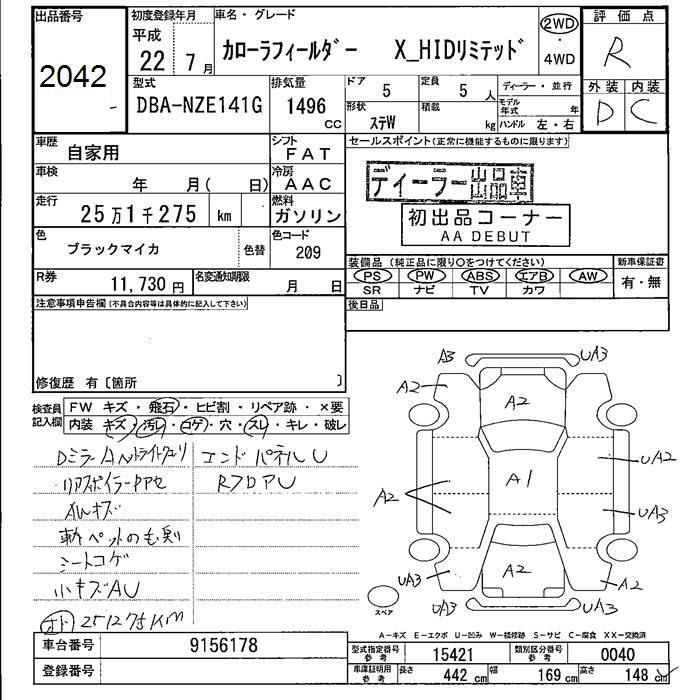 出品番号
2042
初度登録年月
平成
22年 7月
車名・グレード
カローラフィールダー X_HIDリミテッド
2WD
・
4WD
評価点
R
外装 内装
D C
型式
DBA-NZE141G
排気量
1496
cc
ドア
5
定員
5 人
形状
ステW
積載
kg
ディーラー・並行
モデル年式 年
ハンドル 左・右
車歴
自家用
シフト
FAT
車検
年 月( 日)
冷房
AAC
走行
25万1千275 km
燃料
ガソリン
色
ブラックマイカ
色替
色コード
209
R券
11,730 円
名変通知期限
月 日
セールスポイント(正常に機能するものに限ります)
ディーラー出品車
初出品コーナー
AA DEBUT
装備品(純正品に限り○をつけてください)
新車保証書
PS PW ABS エアB AW
SR ナビ TV カワ
有・無
後日品
注意事項申告欄(不具合内容等は具体的に記入して下さい)
修復歴 有〔箇所 〕
検査員
記入欄
FW キズ・飛石・ヒビ割・リペア跡・×要
内装 キズ・汚レ・コゲ・穴・スレ・キレ・破レ
エンドパネルU
リアスポイラー
RフロアU
AWキズ
シートコゲ
小キズAU
251275KM
A3 UA3
A2
A2
A1
UA2
A2
UA3
A2
UA3
A2
UA3 UA3
スペア
A-キズ E-エクボ U-凹み W-補修跡 S-サビ C-腐食 XX-交換済
車台番号
9156178
登録番号
型式指定番号
参考
15421
類別区分番号
参考
0040
車庫証明用
参考
長さ 442 cm
幅 169 cm
高さ 148 cm